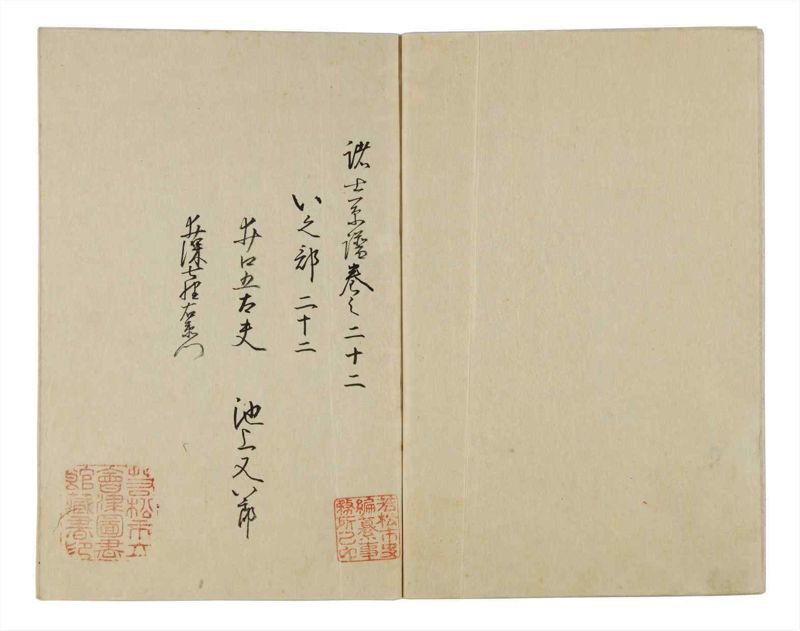 諸士系譜巻之二十二
い之部 二十二
井口五古夫 池上又八郎
井深七左衛門
若松市史
編纂事
務所之印
若松市立
會津圖書
館蔵書印